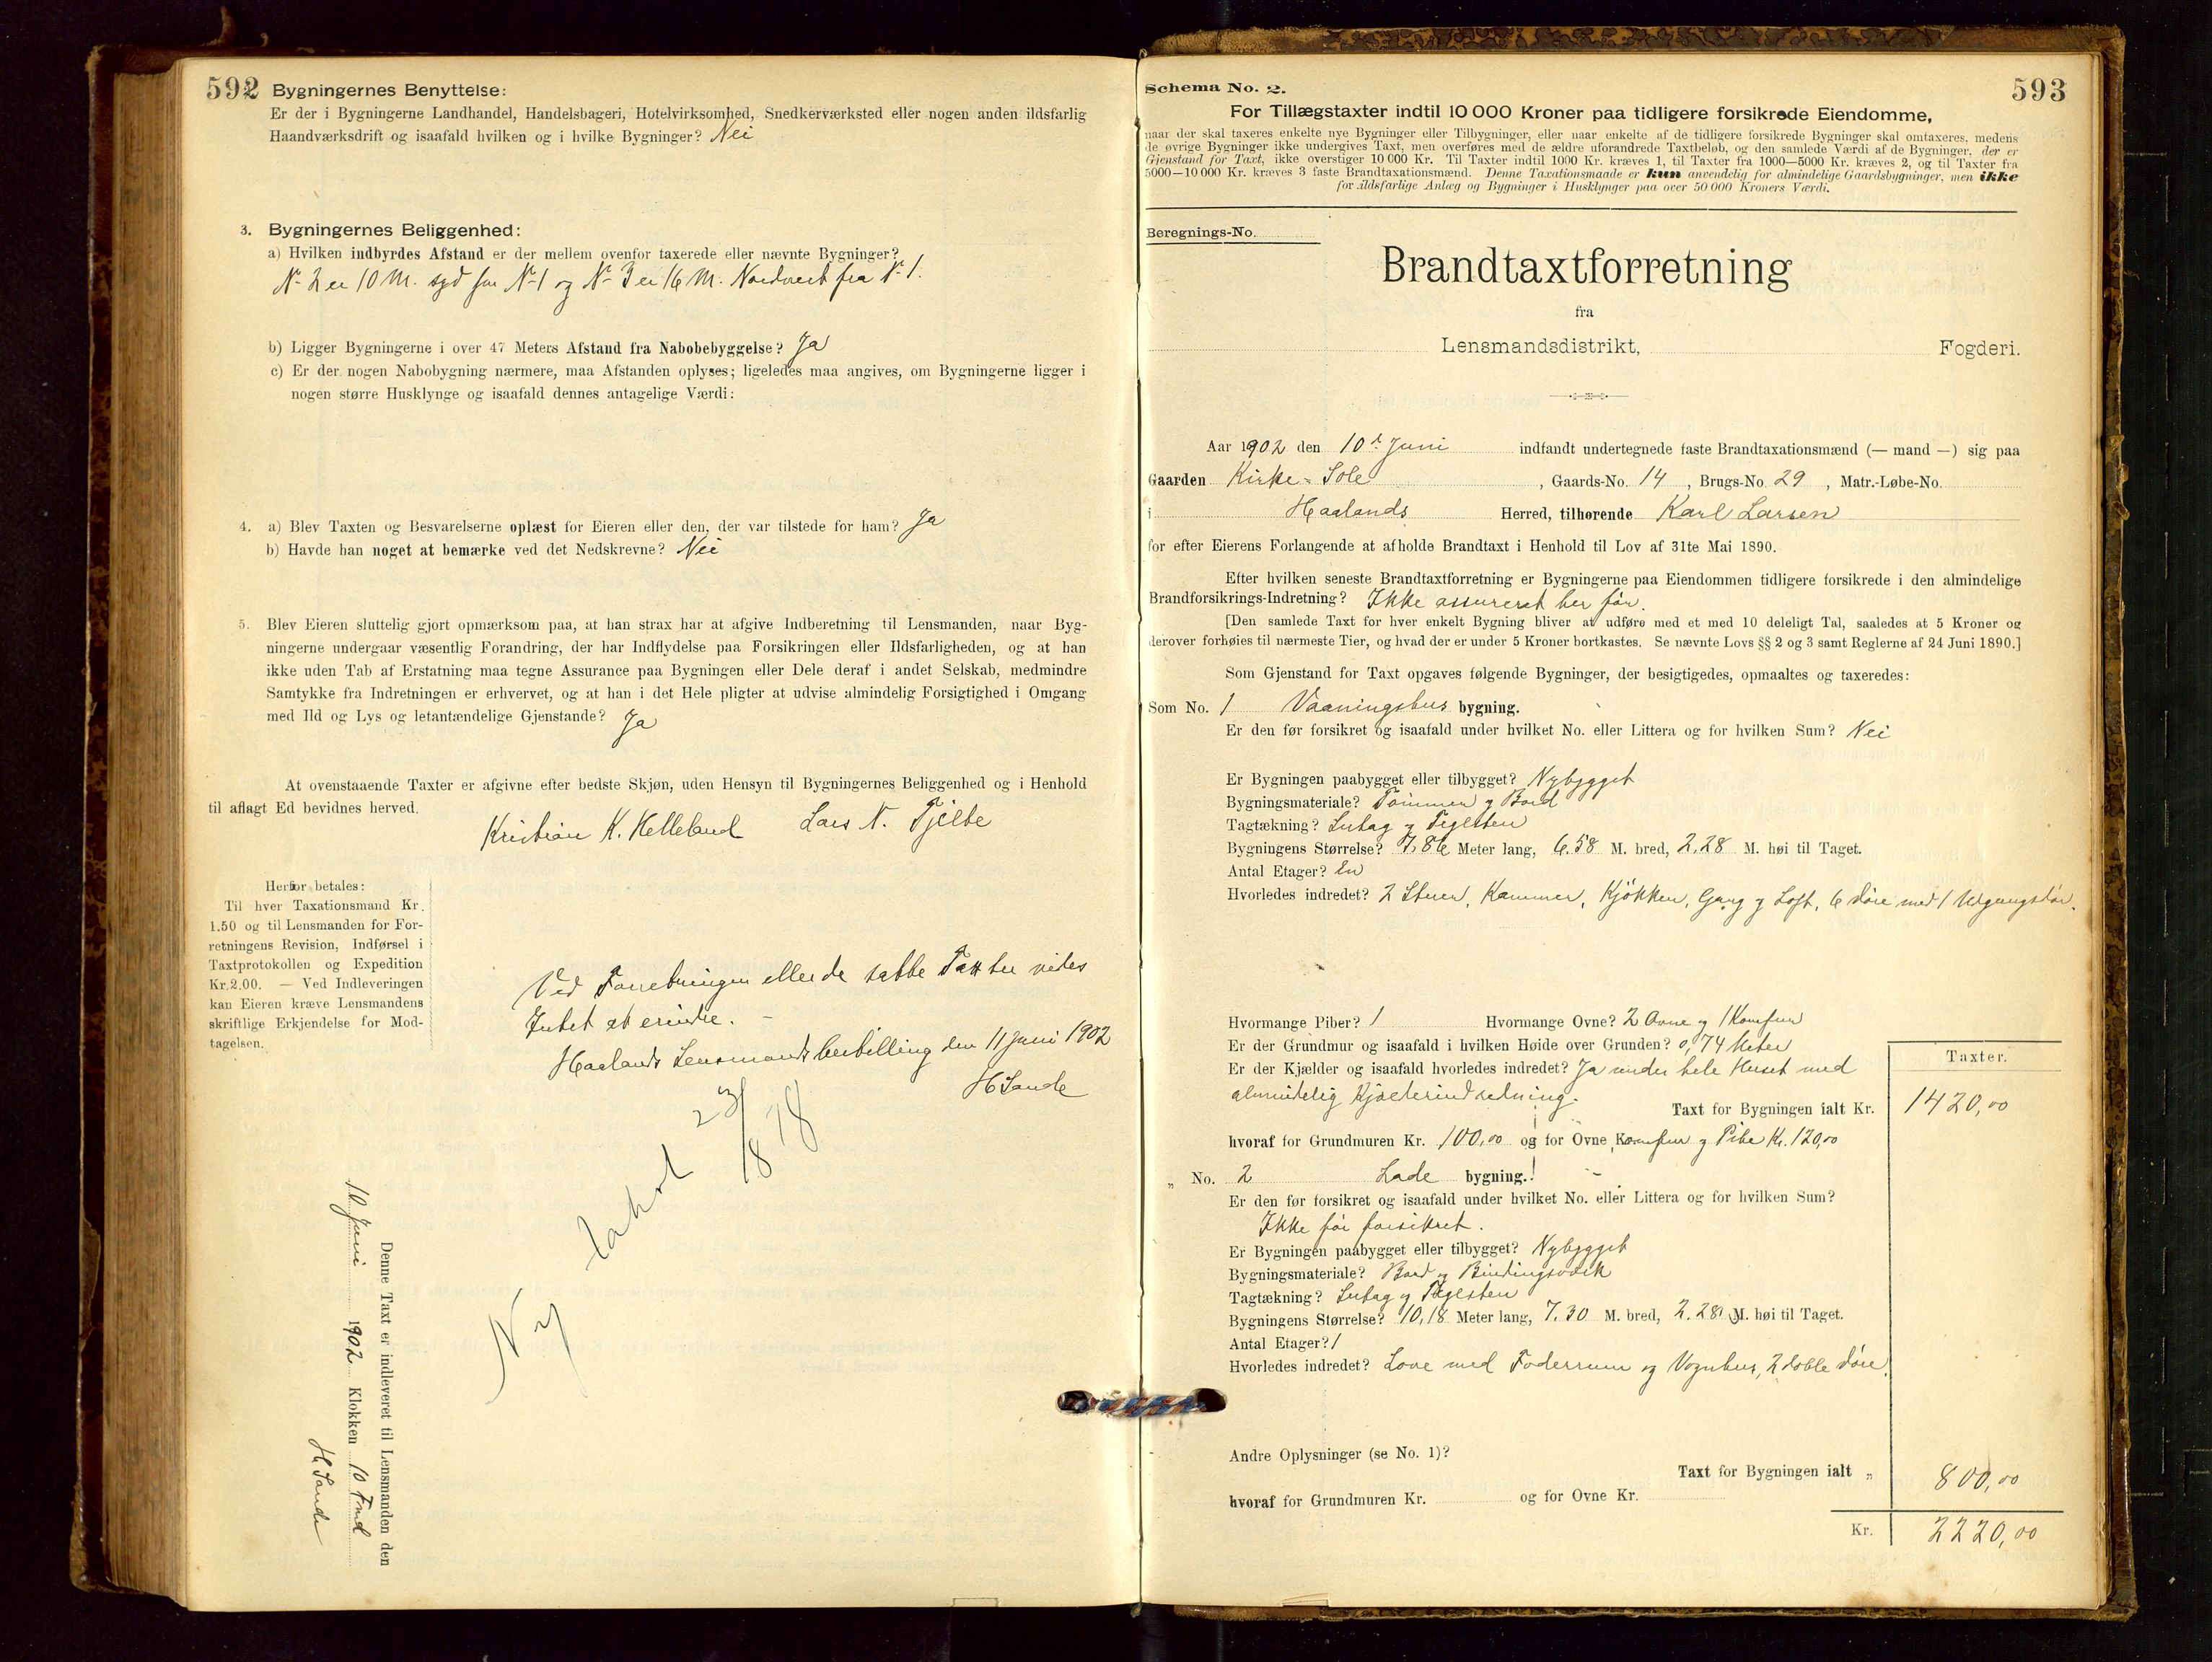 592 Bygningernes Benyttelse:
Er der i Bygningerne Landhandel, Handelsbageri, Hotelvirksomhed, Snedkerværksted eller nogen anden ildsfarlig
Haandværksdrift og isaafald hvilken og i hvilke Bygninger? Nei
3. Bygningernes Beliggenhed:
a) Hvilken indbyrdes Afstand er der mellem ovenfor taxerede eller nævnte Bygninger?
No 2 er 10 M. syd for No 1 og No 3 er 16 M. Nordvest fra No 1.
b) Ligger Bygningerne i over 47 Meters Afstand fra Nabobebyggelse? Ja
c) Er der nogen Nabobygning nærmere, maa Afstanden oplyses; ligeledes maa angives, om Bygningerne ligger i
nogen større Husklynge og isaafald dennes antagelige Værdi:
4. a) Blev Taxten og Besvarelserne oplæst for Eieren eller den, der var tilstede for ham? Ja
b) Havde han noget at bemærke ved det Nedskrevne? Nei
5. Blev Eieren sluttelig gjort opmærksom paa, at han strax har at afgive Indberetning til Lensmanden, naar Byg-
ningerne undergaar væsentlig Forandring, der har Indflydelse paa Forsikringen eller Ildsfarligheden, og at han
ikke uden Tab af Erstatning maa tegne Assurance paa Bygningen eller Dele deraf i andet Selskab, medmindre
Samtykke fra Indretningen er erhvervet, og at han i det Hele pligter at udvise almindelig Forsigtighed i Omgang
med Ild og Lys og letantændelige Gjenstande? Ja
At ovenstaaende Taxter er afgivne efter bedste Skjøn, uden Hensyn til Bygningernes Beliggenhed og i Henhold
til aflagt Ed bevidnes herved.
Kristian K. Helleland Lars N. Tjelte
Herfor betales:
Til hver Taxationsmand Kr.
1.50 og til Lensmanden for For-
retningens Revision, Indførsel i
Taxtprotokollen og Expedition
Kr. 2.00. — Ved Indleveringen
kan Eieren kræve Lensmandens
skriftlige Erkjendelse for Mod-
tagelsen.
Ved Forretningen eller de satte Taxter vides
Intet at erindre. —
Haalands Lensmandsbestilling den 11 Juni 1902
H Sande
Ny takst 23/8 18
Denne Taxt er indleveret til Lensmanden den
10 Juni 1902 Klokken 10 Fmd
H. Sande
Schema No. 2. 593
For Tillægstaxter indtil 10 000 Kroner paa tidligere forsikrede Eiendomme,
naar der skal taxeres enkelte nye Bygninger eller Tilbygninger, eller naar enkelte af de tidligere forsikrede Bygninger skal omtaxeres, medens
de øvrige Bygninger ikke undergives Taxt, men overføres med de ældre uforandrede Taxtbeløb, og den samlede Værdi af de Bygninger, der er
Gjenstand for Taxt, ikke overstiger 10 000 Kr. Til Taxter indtil 1000 Kr. kræves 1, til Taxter fra 1000—5000 Kr. kræves 2, og til Taxter fra
5000—10 000 Kr. kræves 3 faste Brandtaxationsmænd. Denne Taxationsmaade er kun anvendelig for almindelige Gaardsbygninger, men ikke
for ildsfarlige Anlæg og Bygninger i Husklynger paa over 50 000 Kroners Værdi.
Beregnings-No.
Brandtaxtforretning
fra
Lensmandsdistrikt, Fogderi.
Aar 1902 den 10d Juni indfandt undertegnede faste Brandtaxationsmænd (— mand —) sig paa
Gaarden Kirke-Sole, Gaards-No. 14, Brugs-No. 29, Matr.-Løbe-No.
i Haalands Herred, tilhørende Karl Larsen
for efter Eierens Forlangende at afholde Brandtaxt i Henhold til Lov af 31te Mai 1890.
Efter hvilken seneste Brandtaxtforretning er Bygningerne paa Eiendommen tidligere forsikrede i den almindelige
Brandforsikrings-Indretning? Ikke assureret her før.
[Den samlede Taxt for hver enkelt Bygning bliver at udføre med et med 10 deleligt Tal, saaledes at 5 Kroner og
derover forhøies til nærmeste Tier, og hvad der er under 5 Kroner bortkastes. Se nævnte Lovs §§ 2 og 3 samt Reglerne af 24 Juni 1890.]
Som Gjenstand for Taxt opgaves følgende Bygninger, der besigtigedes, opmaaltes og taxeredes:
Som No. 1 Vaaningshus bygning.
Er den før forsikret og isaafald under hvilket No. eller Littera og for hvilken Sum? Nei
Er Bygningen paabygget eller tilbygget? Nybygget
Bygningsmateriale? Tømmer og Bord
Tagtækning? Sutag og Teglsten
Bygningens Størrelse? 7,86 Meter lang, 6.58 M. bred, 2.28 M. høi til Taget.
Antal Etager? En
Hvorledes indredet? 2 Stuer, Kammer, Kjøkken, Gang og Loft, 6 døre med 1 Udgangsdør.
Hvormange Piber? 1 Hvormange Ovne? 2 Ovne og 1 Komfur
Er der Grundmur og isaafald i hvilken Høide over Grunden? 0,74 Meter
Er der Kjælder og isaafald hvorledes indredet? Ja under hele Huset med
almindelig Kjælderindredning.
Taxter.
Taxt for Bygningen ialt Kr. 1420,00
hvoraf for Grundmuren Kr. 100,00 og for Ovne, Komfur og Pibe Kr. 120,00
„ No. 2 Lade bygning.
Er den før forsikret og isaafald under hvilket No. eller Littera og for hvilken Sum?
Ikke før forsikret.
Er Bygningen paabygget eller tilbygget? Nybygget
Bygningsmateriale? Bord og Bindingsværk
Tagtækning? Sutag og Teglsten
Bygningens Størrelse? 10,18 Meter lang, 7.30 M. bred, 2.28 M. høi til Taget.
Antal Etager? 1
Hvorledes indredet? Love med Foderrum og Vognhus, 2 doble døre.
Andre Oplysninger (se No. 1)?
Taxt for Bygningen ialt „ 800,00
hvoraf for Grundmuren Kr. og for Ovne Kr.
Kr. 2220,00